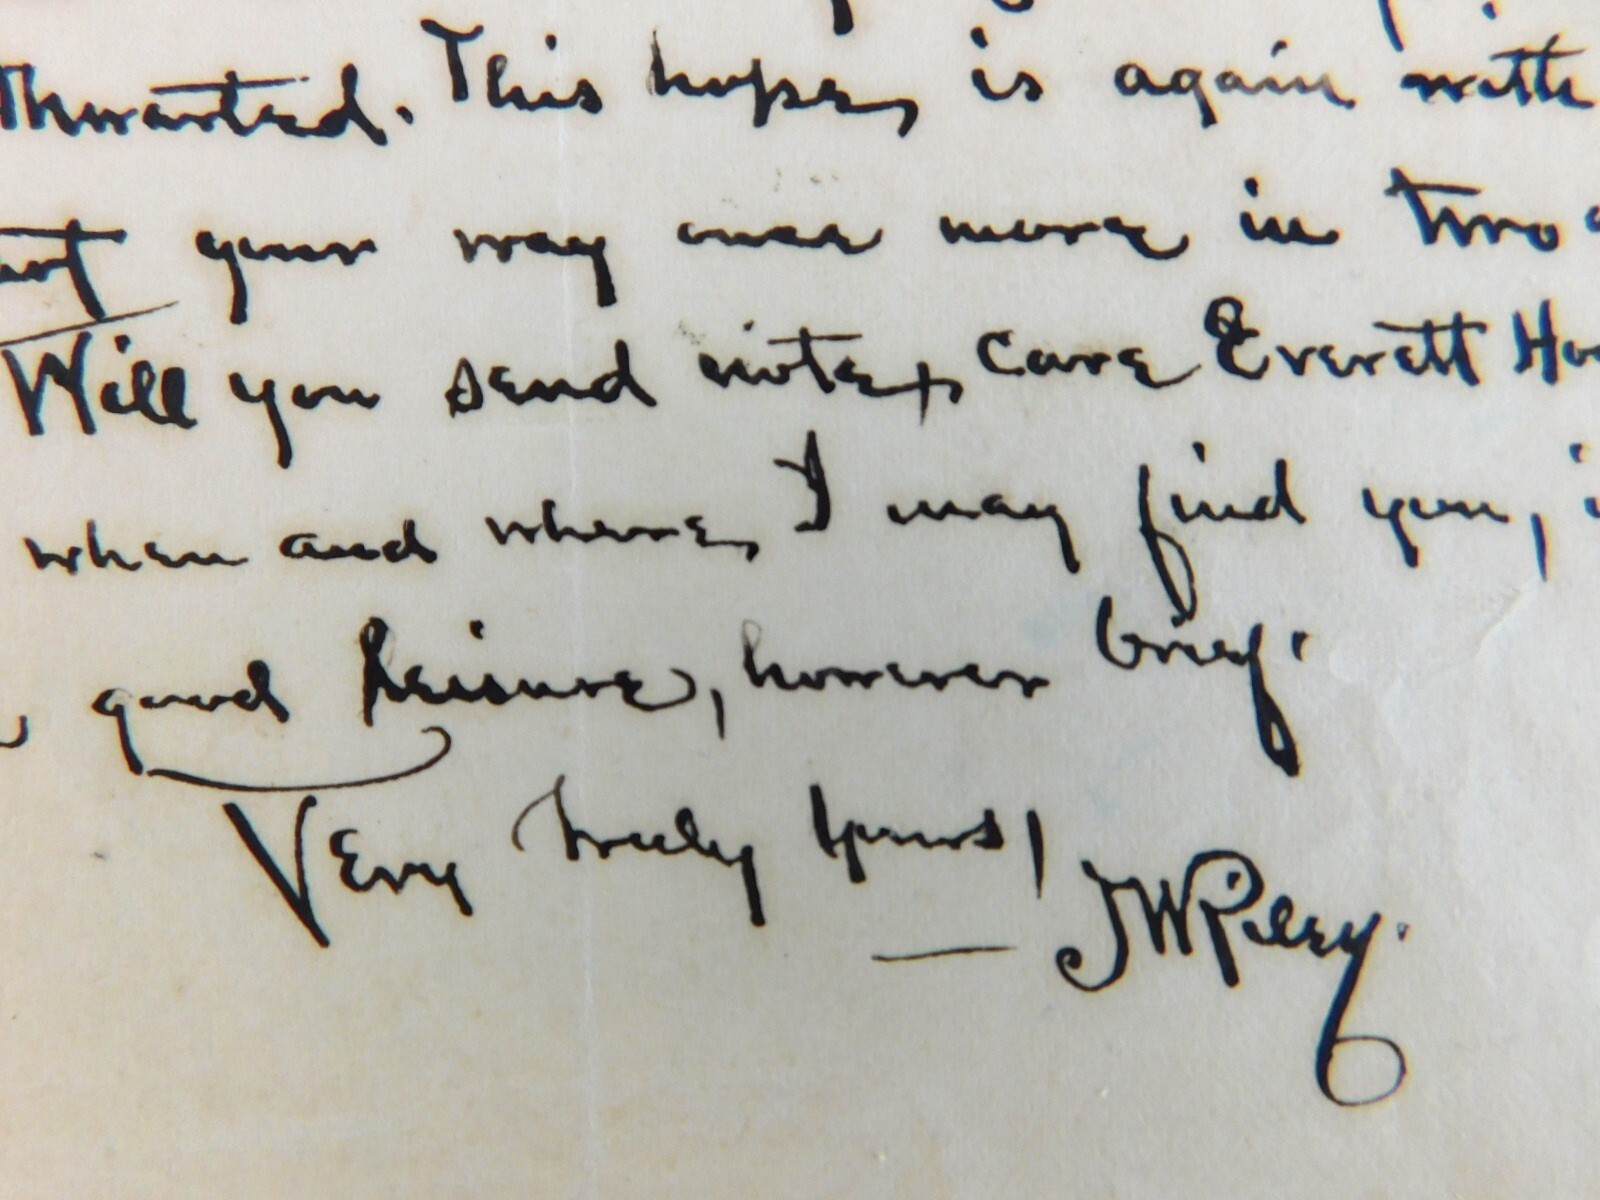 thwarted. This hope, is again with
your way once more in two
Will you send note, care Everett
when and where, I may find you,
good leisure, however brief.
Very truly yours,
— JWRiley.